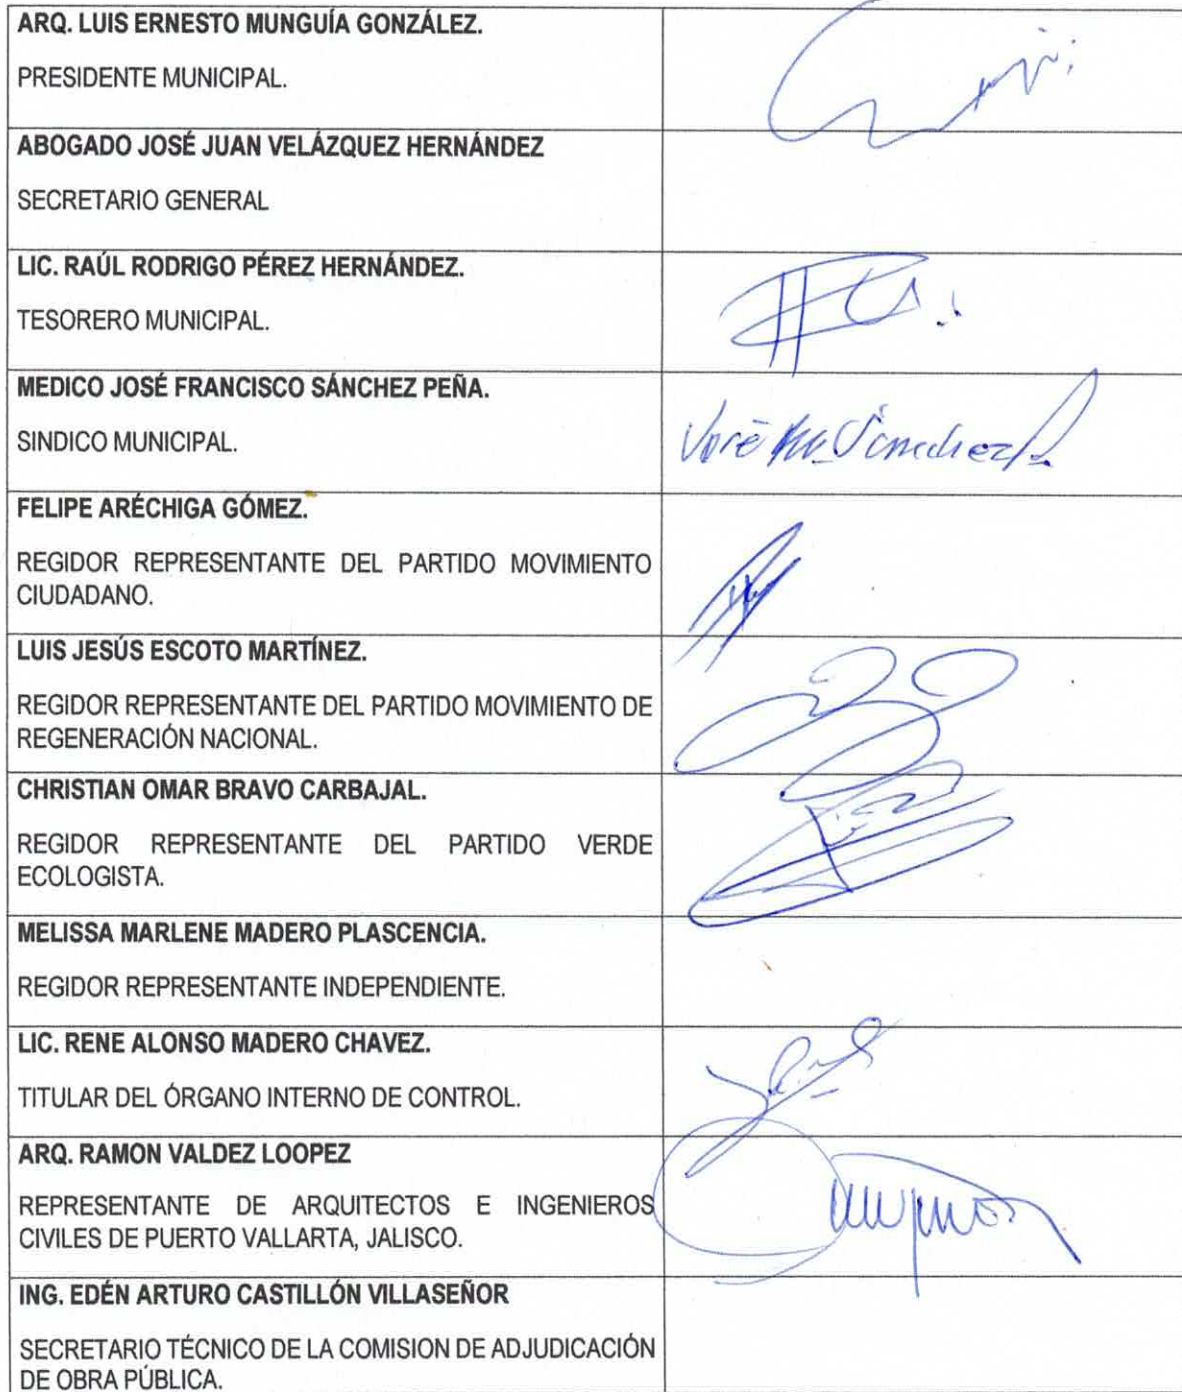 ARQ. LUIS ERNESTO MUNGUÍA GONZÁLEZ.
PRESIDENTE MUNICIPAL.
ABOGADO JOSÉ JUAN VELÁZQUEZ HERNÁNDEZ
SECRETARIO GENERAL
LIC. RAÚL RODRIGO PÉREZ HERNÁNDEZ.
TESORERO MUNICIPAL.
MEDICO JOSÉ FRANCISCO SÁNCHEZ PEÑA.
SINDICO MUNICIPAL.
José Sánchez
FELIPE ARÉCHIGA GÓMEZ.
REGIDOR REPRESENTANTE DEL PARTIDO MOVIMIENTO
CIUDADANO.
LUIS JESÚS ESCOTO MARTÍNEZ.
REGIDOR REPRESENTANTE DEL PARTIDO MOVIMIENTO DE
REGENERACIÓN NACIONAL.
CHRISTIAN OMAR BRAVO CARBAJAL.
REGIDOR REPRESENTANTE DEL PARTIDO VERDE
ECOLOGISTA.
MELISSA MARLENE MADERO PLASCENCIA.
REGIDOR REPRESENTANTE INDEPENDIENTE.
LIC. RENE ALONSO MADERO CHAVEZ.
TITULAR DEL ÓRGANO INTERNO DE CONTROL.
ARQ. RAMON VALDEZ LOOPEZ
REPRESENTANTE DE ARQUITECTOS E INGENIEROS
CIVILES DE PUERTO VALLARTA, JALISCO.
ING. EDÉN ARTURO CASTILLÓN VILLASEÑOR
SECRETARIO TÉCNICO DE LA COMISION DE ADJUDICACIÓN
DE OBRA PÚBLICA.